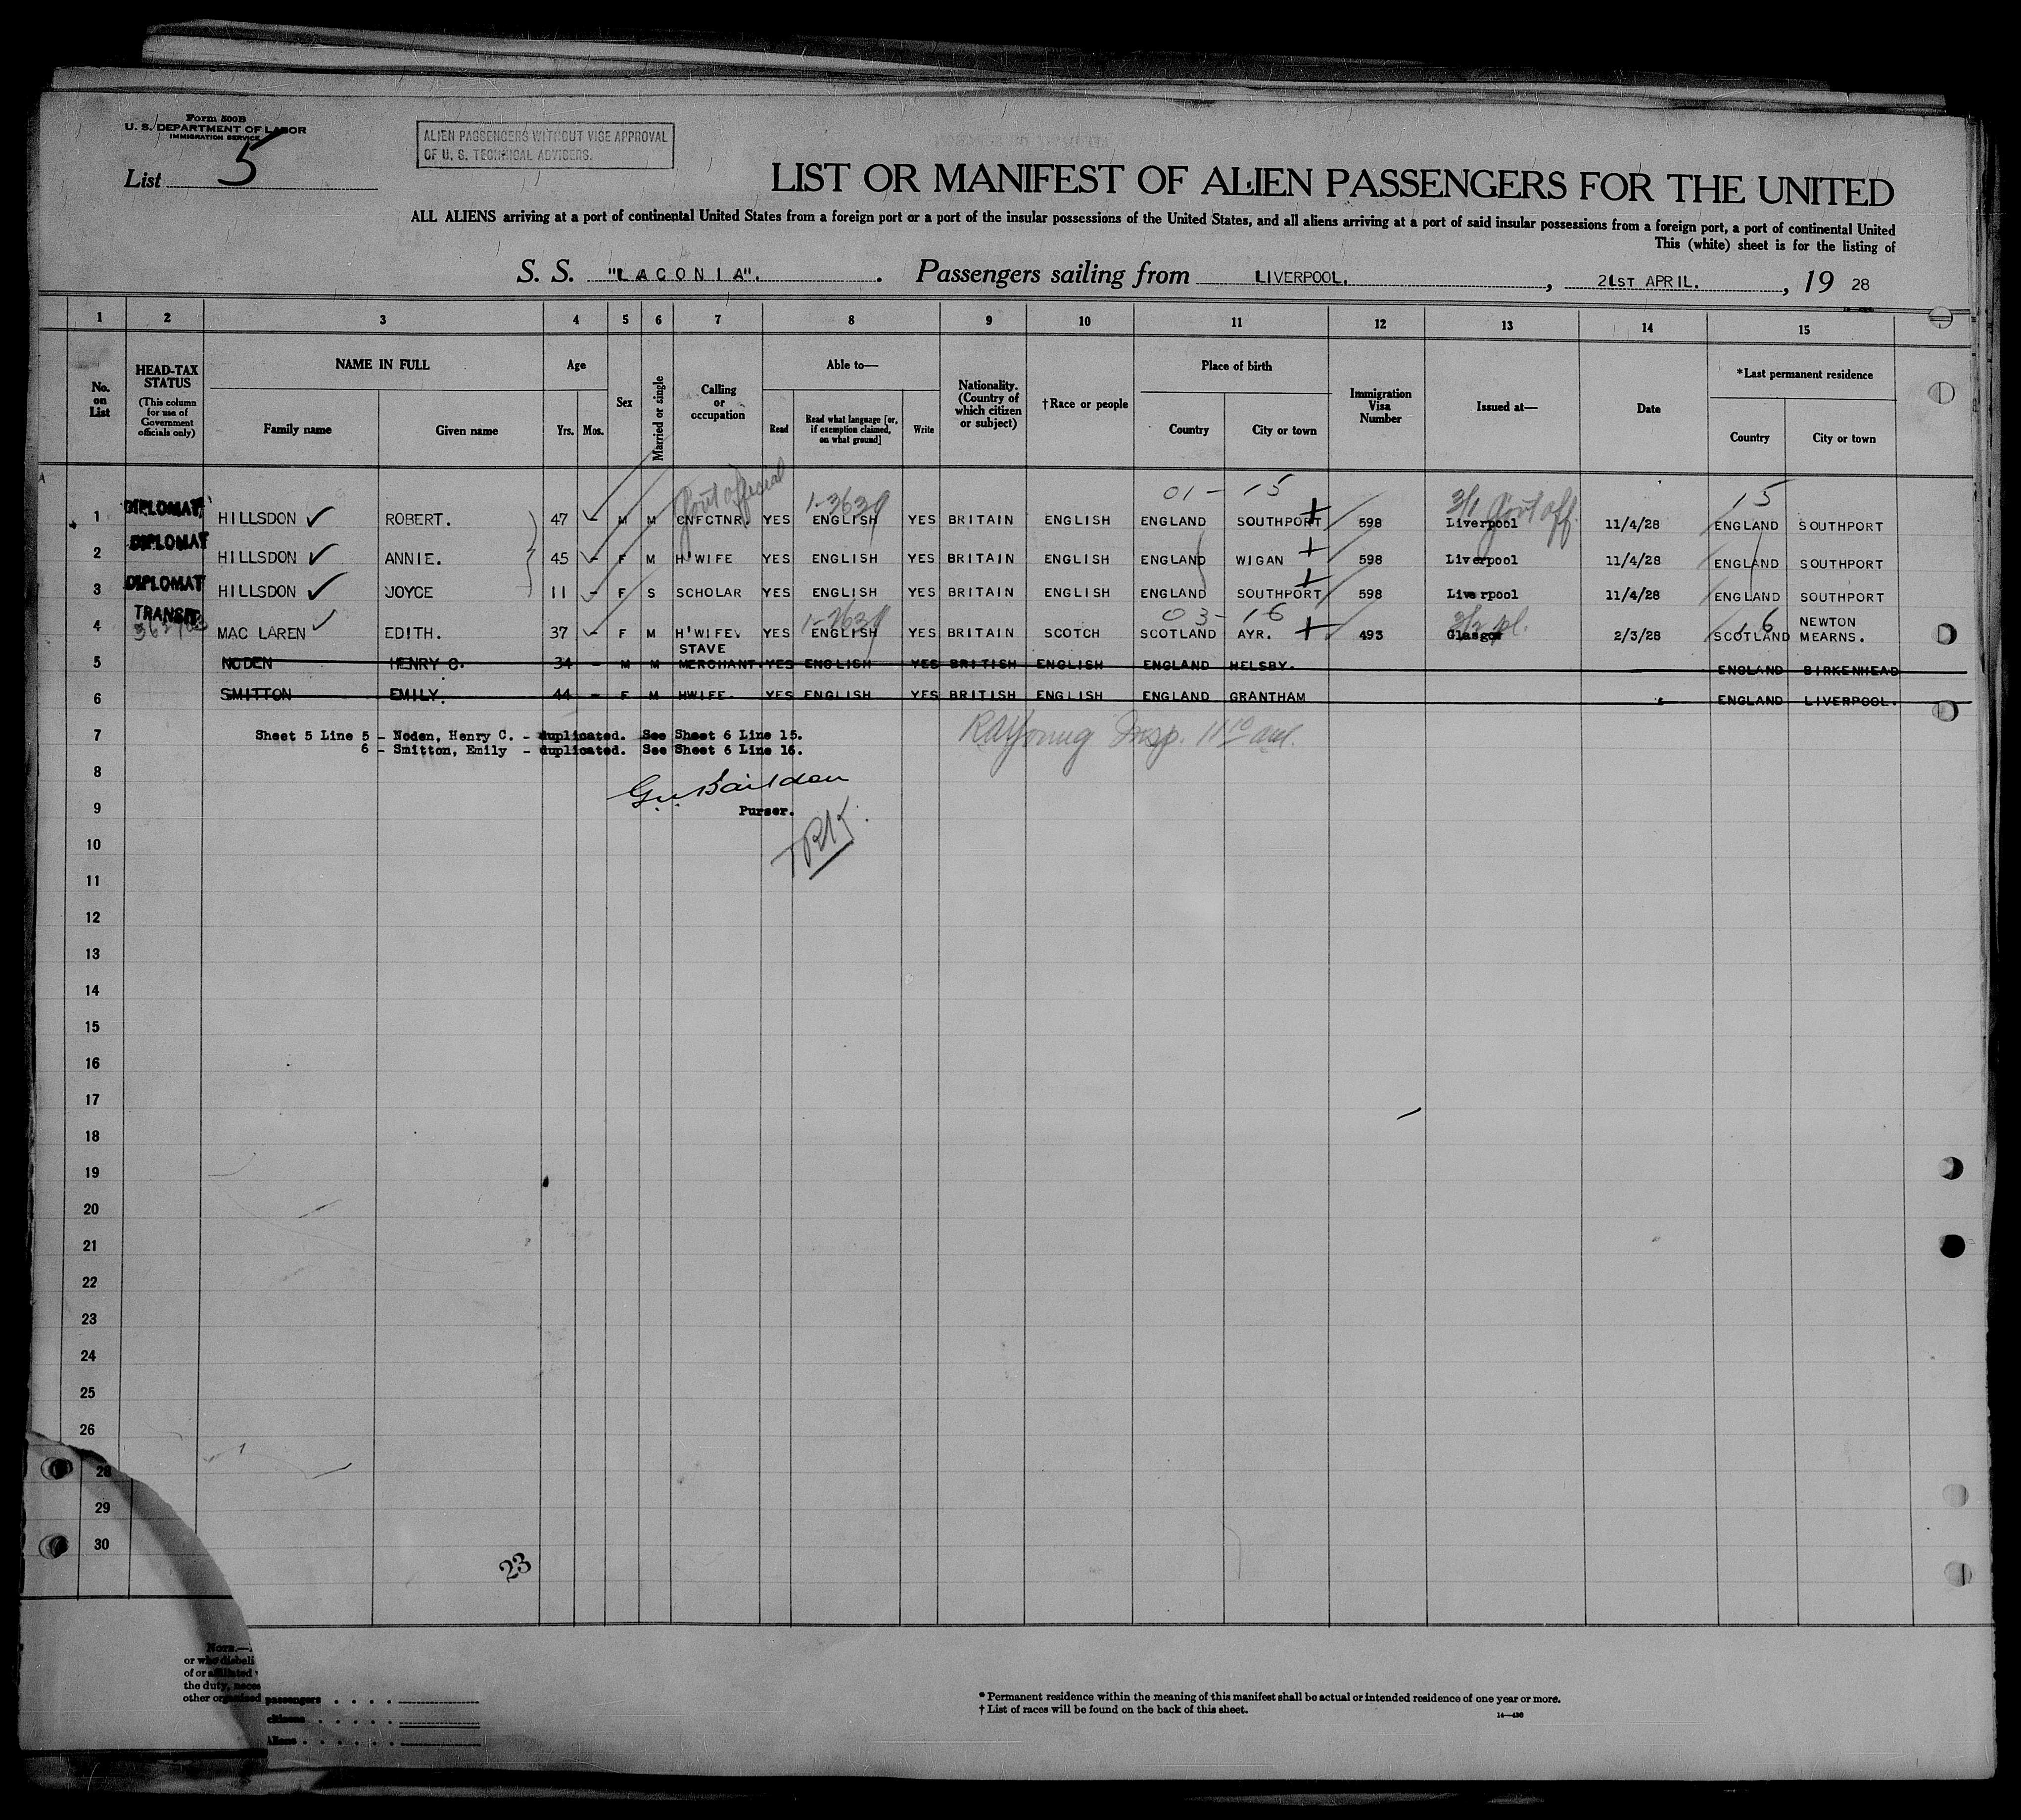 Form 500B
U. S. DEPARTMENT OF LABOR
IMMIGRATION SERVICE
List 5
ALIEN PASSENGERS WITHOUT VISE APPROVAL
OF U. S. TECHNICAL ADVISERS.
LIST OR MANIFEST OF ALIEN PASSENGERS FOR THE UNITED
ALL ALIENS arriving at a port of continental United States from a foreign port or a port of the insular possessions of the United States, and all aliens arriving at a port of said insular possessions from a foreign port, a port of continental United
This (white) sheet is for the listing of
S. S. "LACONIA". Passengers sailing from LIVERPOOL. , 21ST APRIL. , 19 28
1 2 3 4 5 6 7 8 9 10 11 12 13 14 15
No. on List
HEAD-TAX STATUS
(This column for use of Government officials only)
NAME IN FULL
Family name
Given name
Age
Yrs. Mos.
Sex
Married or single
Calling or occupation
Able to—
Read
Read what language [or, if exemption claimed, on what ground]
Write
Nationality. (Country of which citizen or subject)
†Race or people
Place of birth
Country
City or town
Immigration Visa Number
Issued at—
Date
*Last permanent residence
Country
City or town
Gov't official 1-3639 01 - 15 3/1 Gov't off. 15
1 DIPLOMAT HILLSDON ROBERT. 47 - M M CNFCTNR. YES ENGLISH YES BRITAIN ENGLISH ENGLAND SOUTHPORT 598 Liverpool 11/4/28 ENGLAND SOUTHPORT
2 DIPLOMAT HILLSDON ANNIE. 45 - F M H'WIFE YES ENGLISH YES BRITAIN ENGLISH ENGLAND WIGAN 598 Liverpool 11/4/28 ENGLAND SOUTHPORT
3 DIPLOMAT HILLSDON JOYCE 11 - F S SCHOLAR YES ENGLISH YES BRITAIN ENGLISH ENGLAND SOUTHPORT 598 Liverpool 11/4/28 ENGLAND SOUTHPORT
TRANSIT 1-3639 03 - 16 16 NEWTON
4 MAC LAREN EDITH. 37 - F M H'WIFE. YES ENGLISH YES BRITAIN SCOTCH SCOTLAND AYR. 493 Glasgow 2/3/28 SCOTLAND MEARNS.
STAVE
5 NODEN HENRY C. 34 - M M MERCHANT. YES ENGLISH YES BRITISH ENGLISH ENGLAND HELSBY. ENGLAND BIRKENHEAD
6 SMITTON EMILY. 44 - F M HWIFE. YES ENGLISH YES BRITISH ENGLISH ENGLAND GRANTHAM ENGLAND LIVERPOOL.
7 Sheet 5 Line 5 - Noden, Henry C. - duplicated. See Sheet 6 Line 15.
6 - Smitton, Emily - duplicated. See Sheet 6 Line 16.
RAYoung Insp.
8
9 Purser.
10
11
12
13
14
15
16
17
18
19
20
21
22
23
24
25
26
28
29
30
23
Note.—
or who disbeli
of or affiliated
the duty, neces
other organized
passengers
citizens
Aliens
* Permanent residence within the meaning of this manifest shall be actual or intended residence of one year or more.
† List of races will be found on the back of this sheet.
14—430